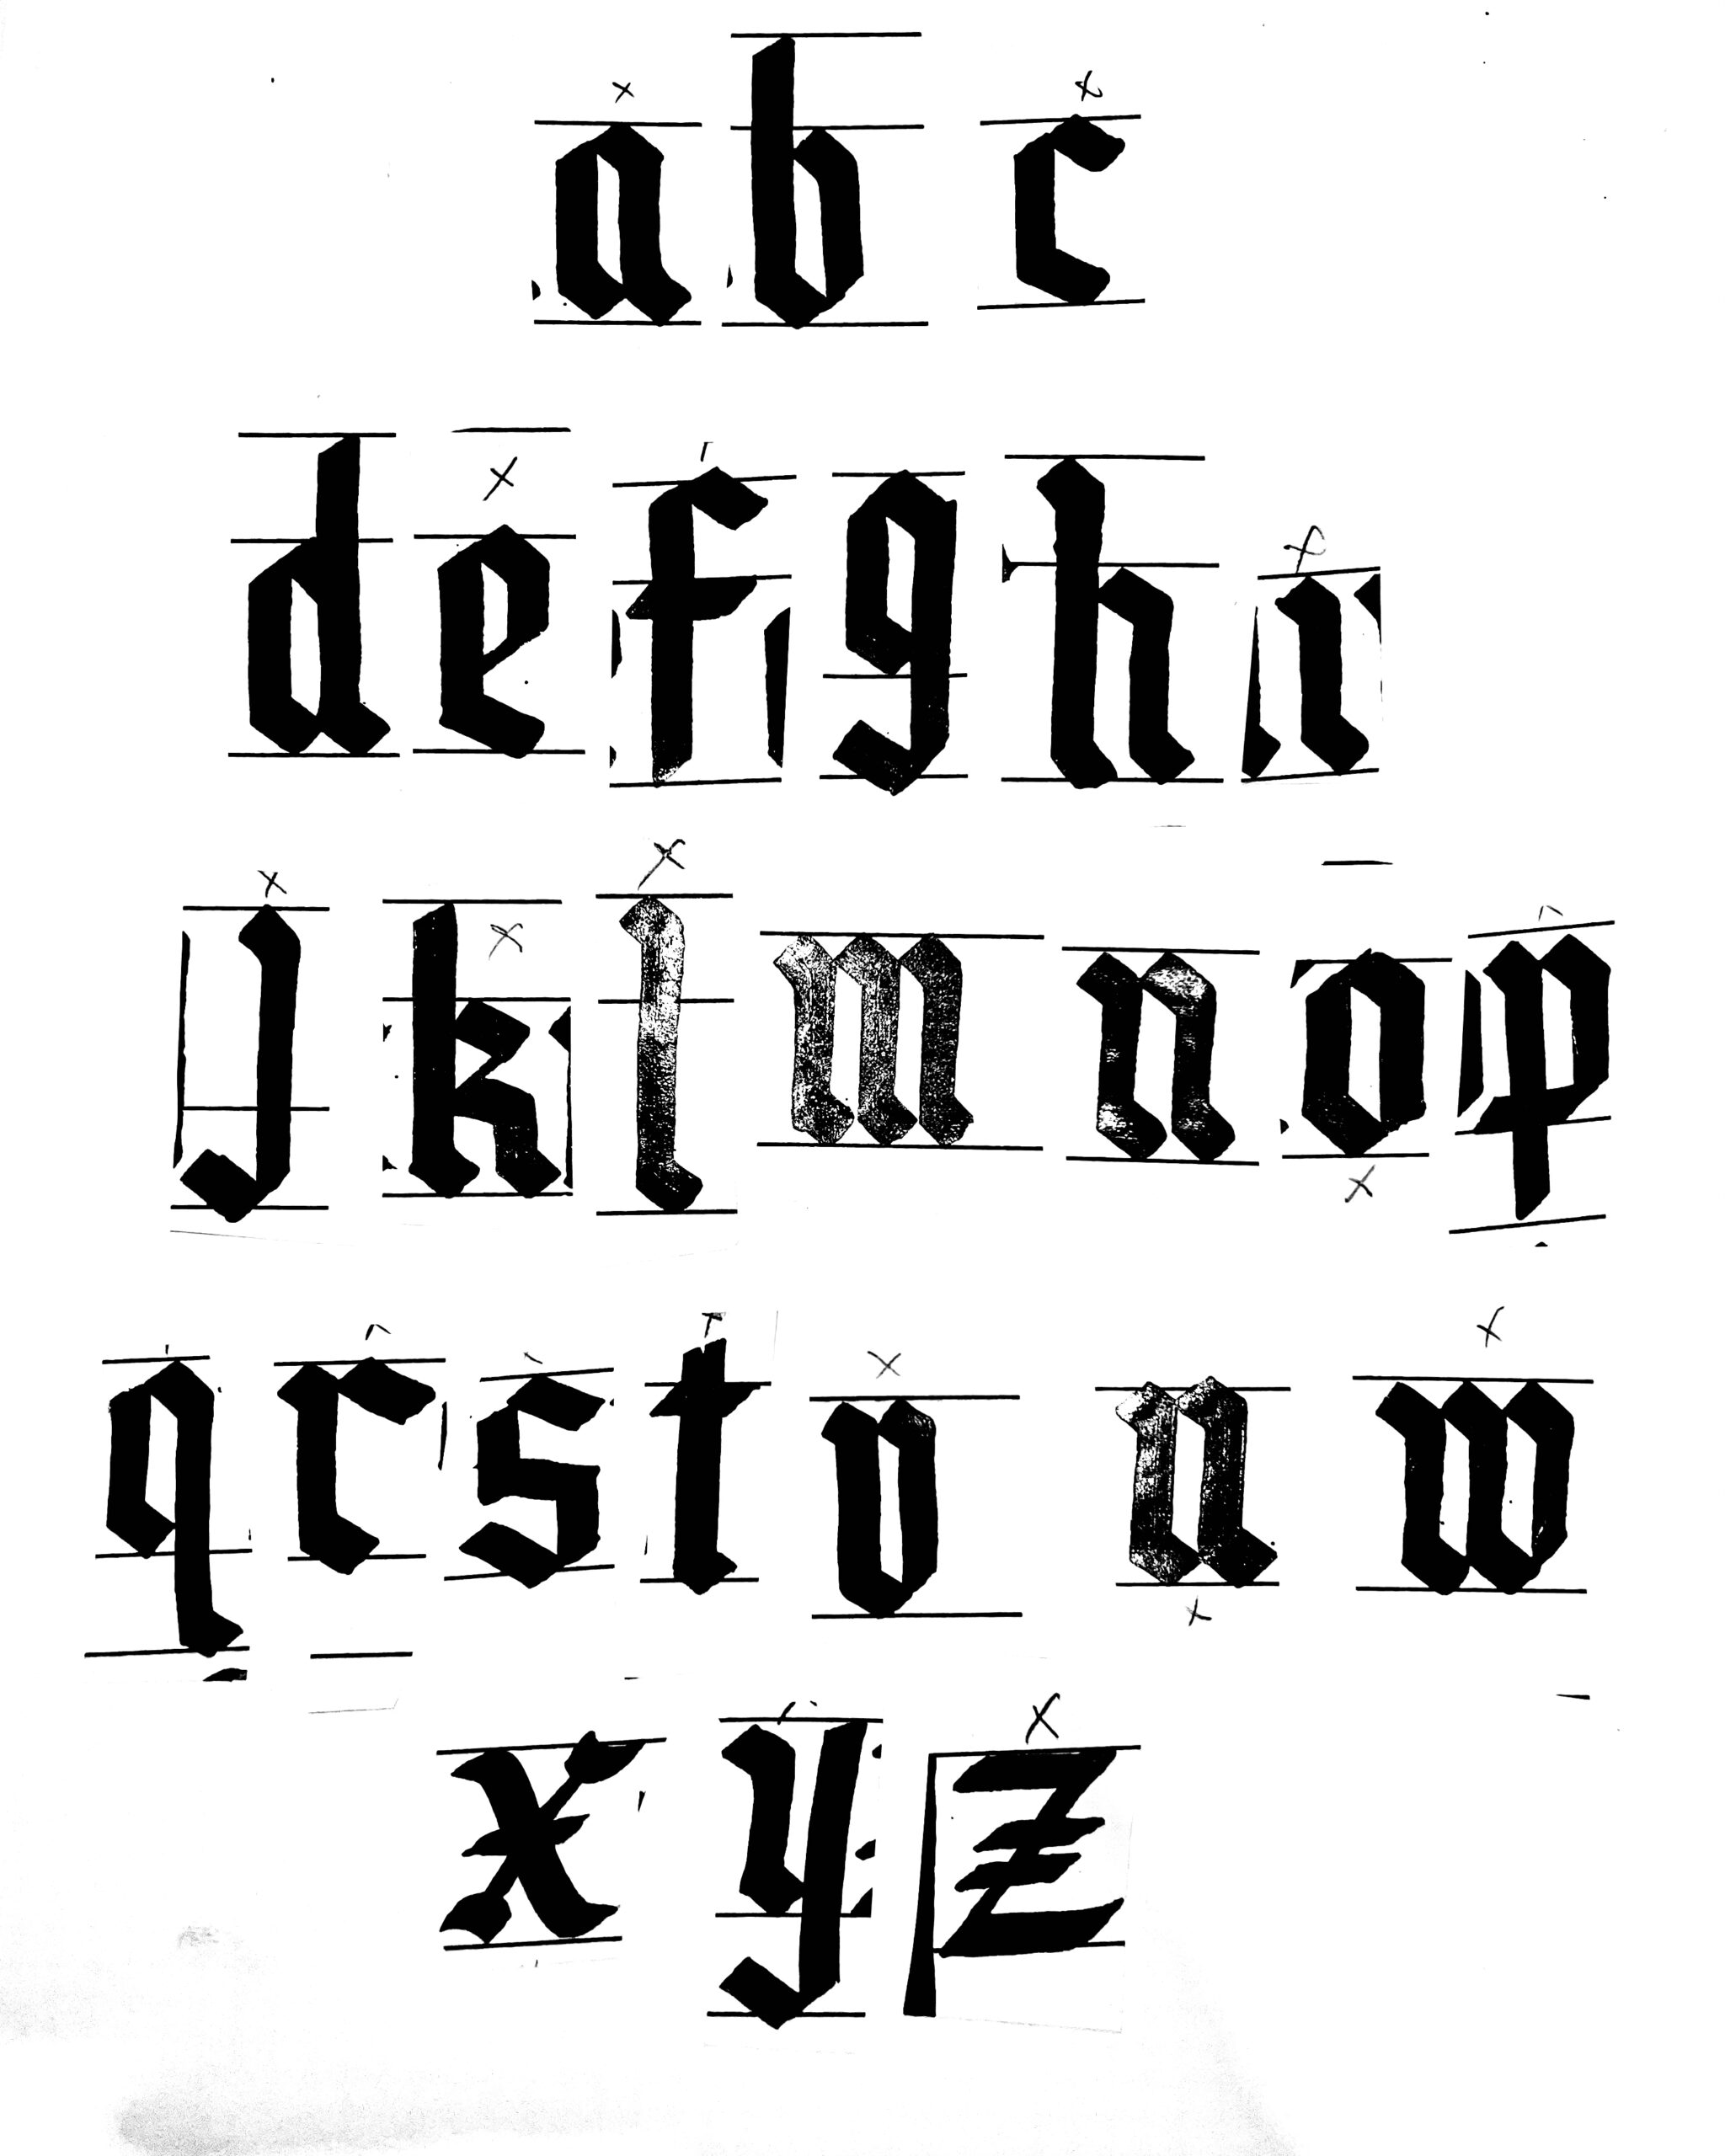 a b c
d e f g h i
j k l m n o p
q r s t v u w
x y z